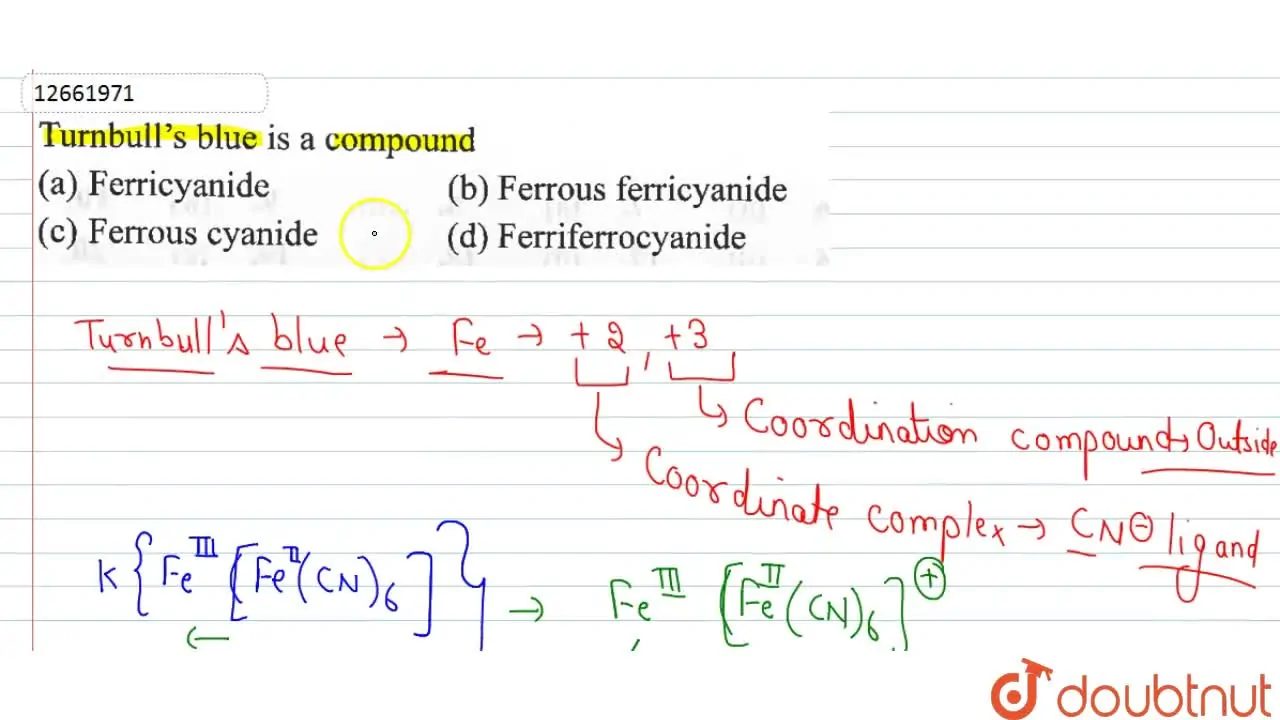 12661971
Turnbull's blue is a compound
(a) Ferricyanide (b) Ferrous ferricyanide
(c) Ferrous cyanide (d) Ferriferrocyanide
Turnbull's blue → Fe → +2, +3
↳ Coordination compound → Outside
↳ Coordinate complex → CN⊖ ligand
K{Fe^III[Fe^II(CN)₆]} → Fe^III[Fe^II(CN)₆]^⊕
←
doubtnut